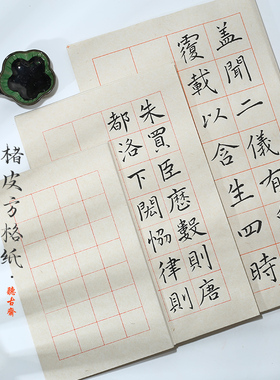 盖聞二儀有
覆載以含生四時
朱買臣歷數則唐
都洛下閎恊律則
楮皮方格纸·德古齋